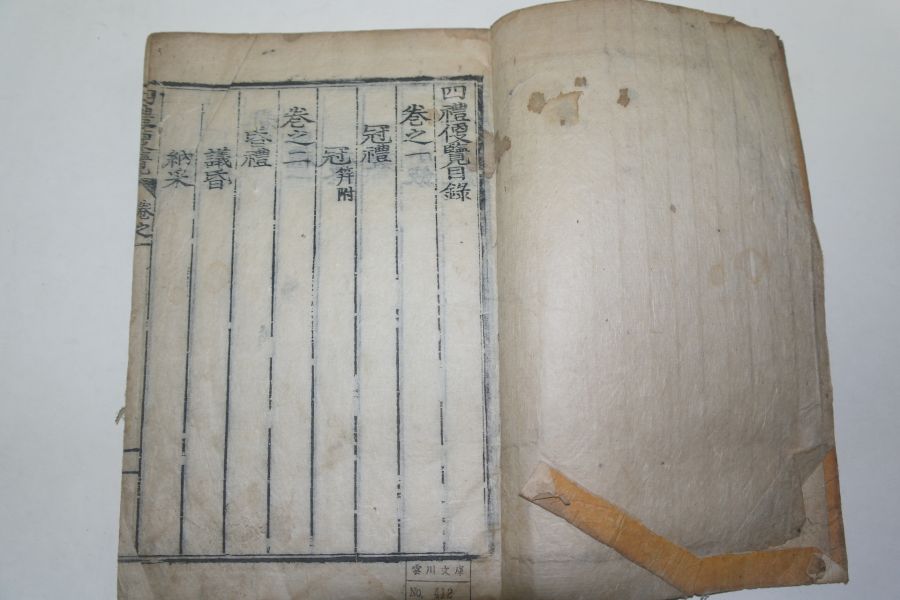 四禮便覽目錄
卷之一
冠禮
冠 筓附
卷之二
昏禮
議昏
納采
四禮便覽 卷之
雲川文庫
No. 412